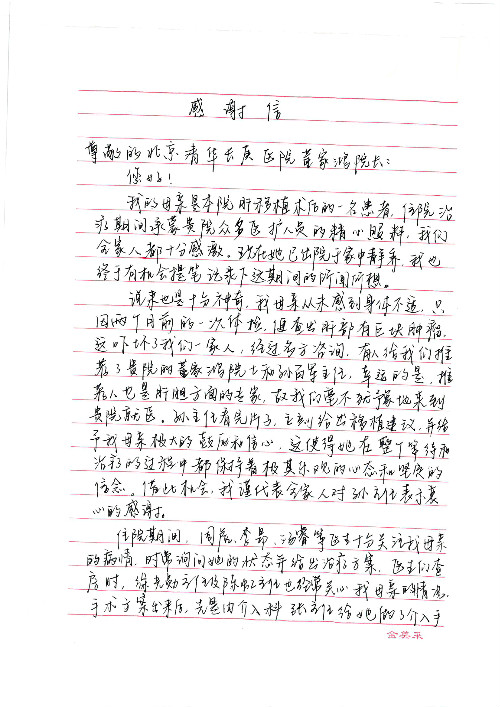 感谢信
尊敬的北京清华长庚医院董家鸿院长:
您好!
我的母亲是本院肝移植术后的一名患者,住院治
疗期间承蒙贵院众多医护人员的精心照料,我们
全家人都十分感激。现在她已出院于家中静养,我也
终于有机会提笔记录下这期间的所闻所想。
说来也是十分神奇,我母亲从未感到身体不适,只
因两个月前的一次体检,便查出肝部有巨块肿瘤,
这吓坏了我们一家人,经过多方咨询,有人给我们推
荐了贵院的董家鸿院士和孙百军主任,幸运的是,推
荐人也是肝胆方面的专家,故我们毫不犹豫地来到
贵院就医。孙主任看完片子,立刻给出移植建议,并给
予我母亲极大的鼓励和信心,这使得她在整个等待和
治疗的过程中都保持着极其乐观的心态和坚定的
信念。借此机会,我谨代表全家人对孙主任表示衷
心的感谢。
住院期间,周 、李昂、汤睿等医生十分关注我母亲
的病情,时常询问她的状态并给出治疗方案,医生们查
房时,徐光勋主任及陈虹主任也经常关心我母亲的情况。
手术方案出来后,先是由介入科张主任给她做了介入手
金奖来